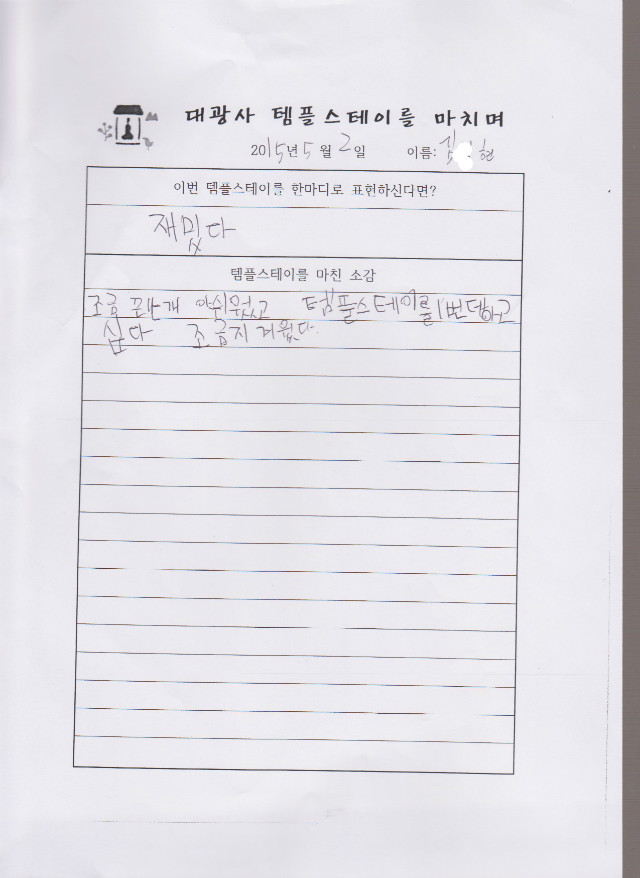 대광사 템플스테이를 마치며
2015년 5월 2일 이름: 김 현
이번 템플스테이를 한마디로 표현하신다면?
재밌다
템플스테이를 마친 소감
조금 끝난개 아쉬웠고 템플스테이를 1번 더하고
십다 조금지겨웠다.